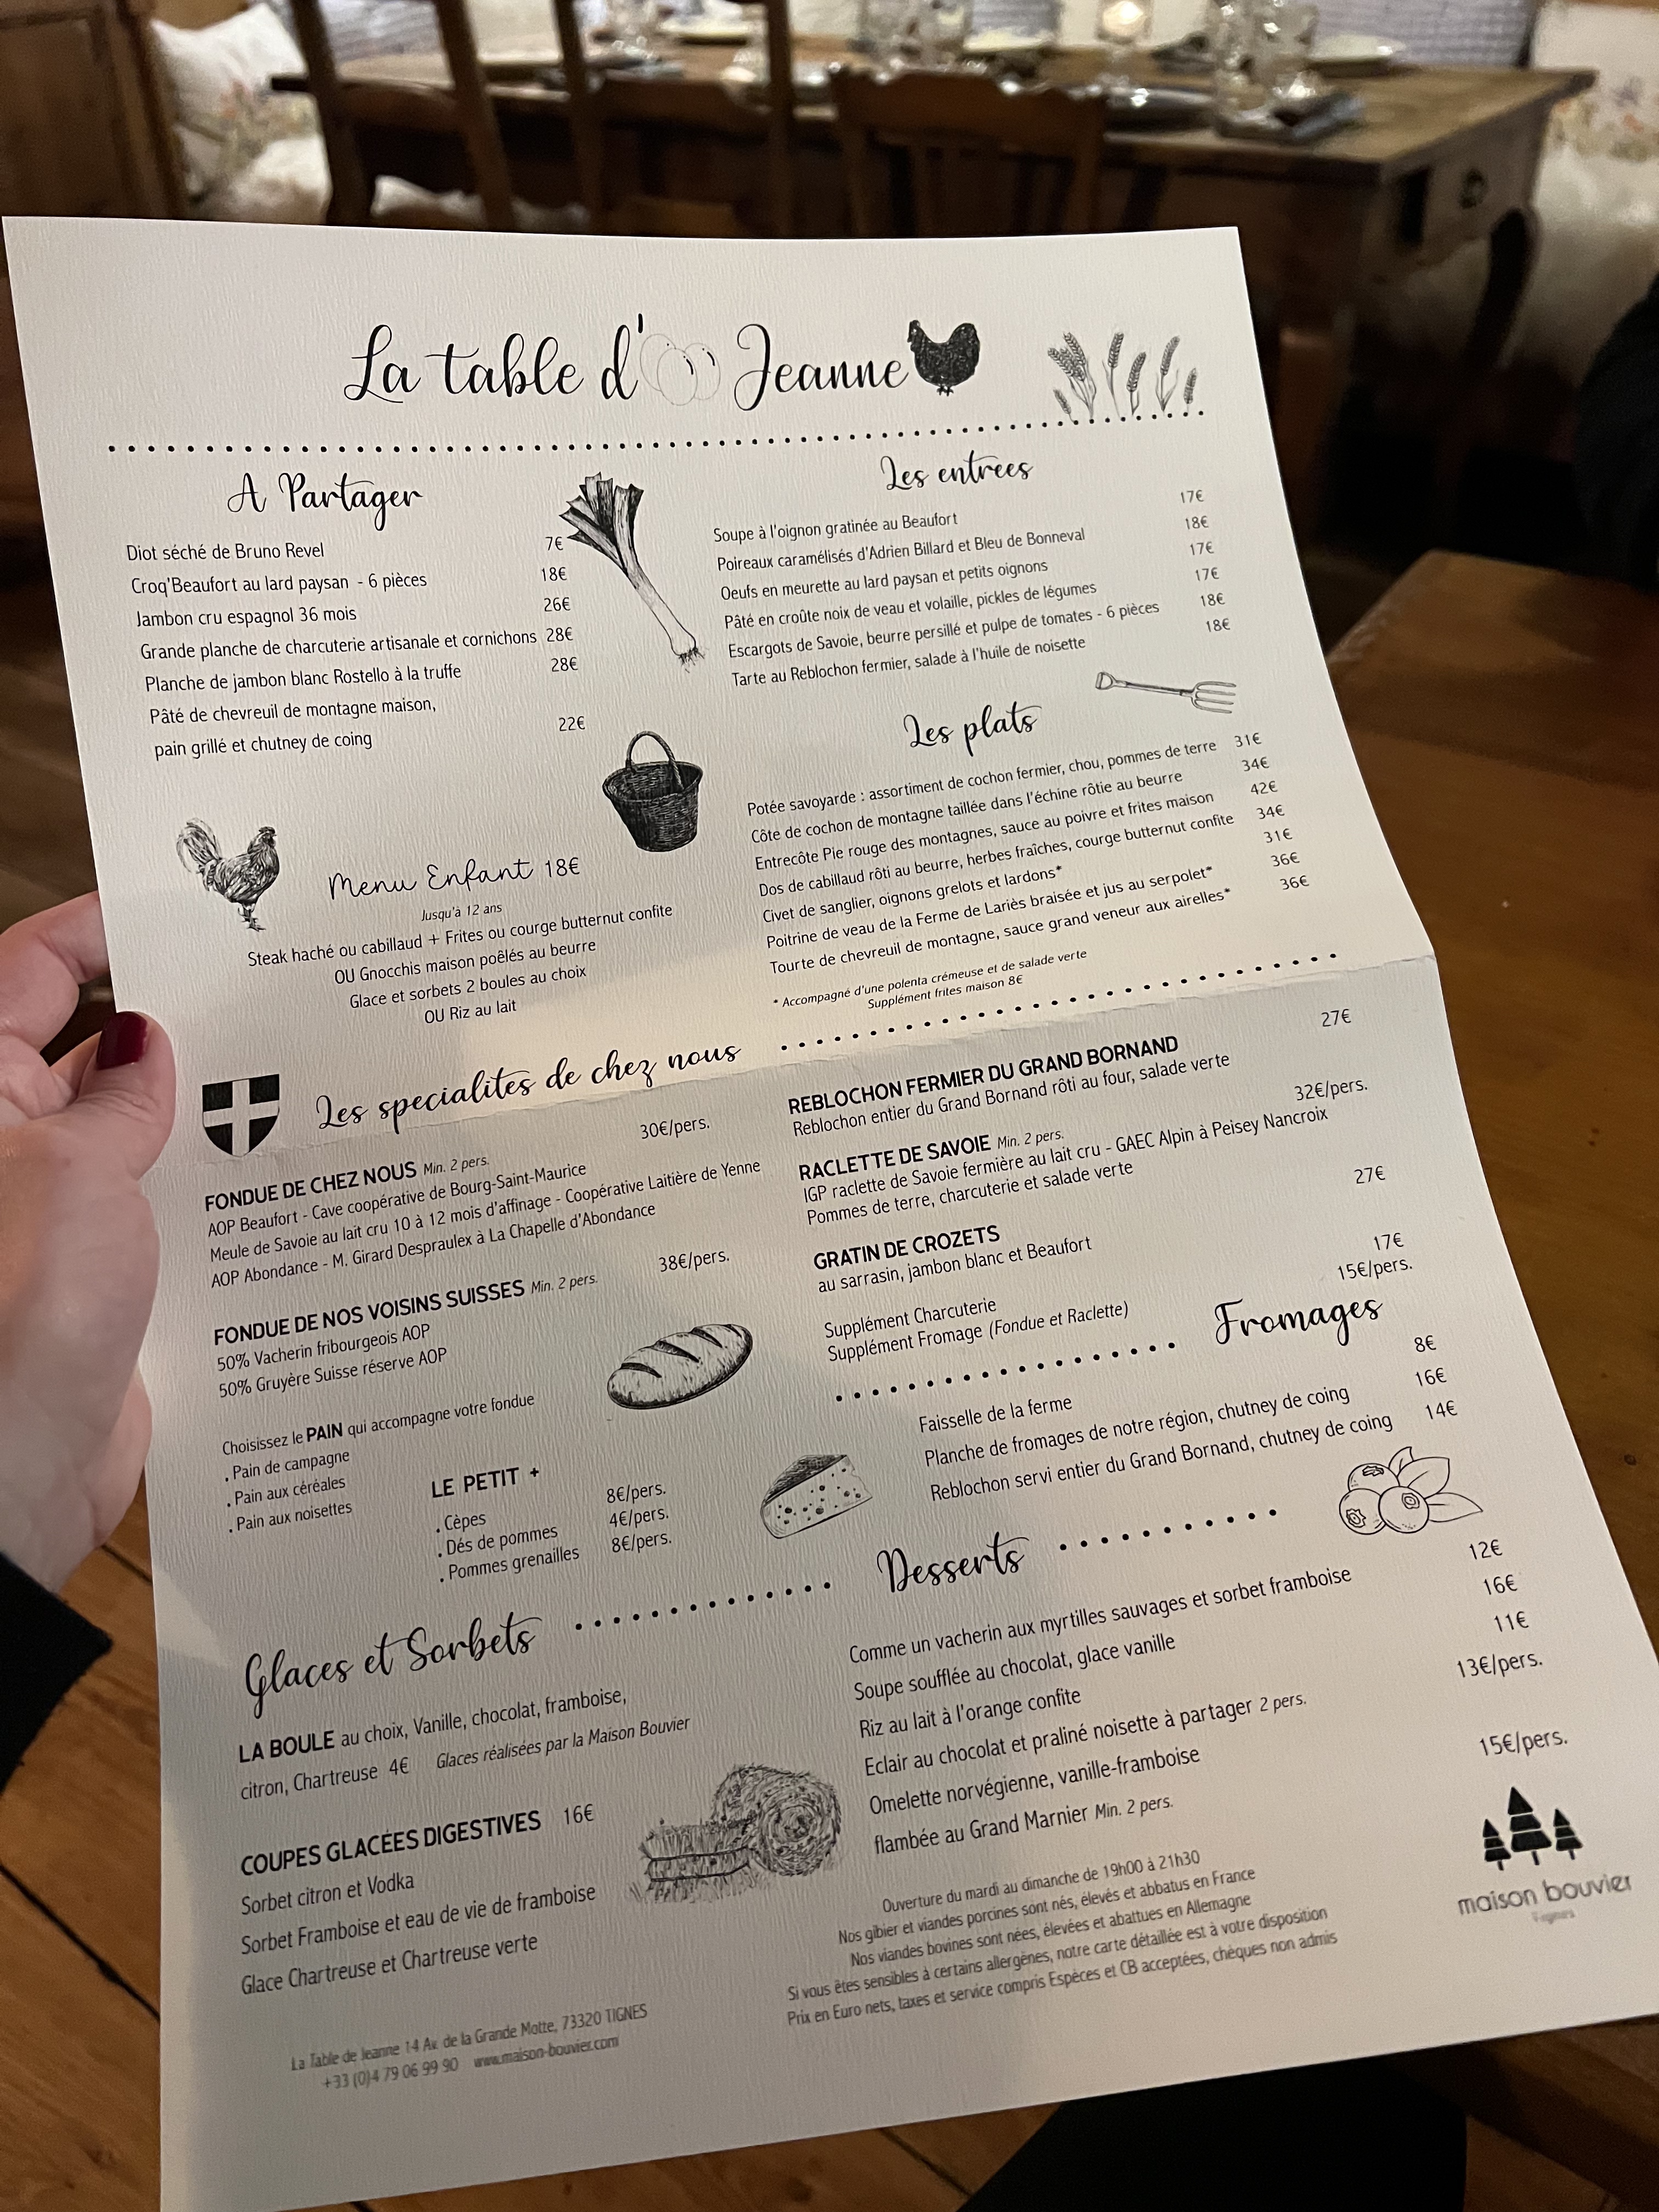 La table d' Jeanne
A Partager
Diot séché de Bruno Revel 7€
Croq'Beaufort au lard paysan - 6 pièces 18€
Jambon cru espagnol 36 mois 26€
Grande planche de charcuterie artisanale et cornichons 28€
Planche de jambon blanc Rostello à la truffe 28€
Pâté de chevreuil de montagne maison,
pain grillé et chutney de coing 22€
Menu Enfant 18€
Jusqu'à 12 ans
Steak haché ou cabillaud + Frites ou courge butternut confite
OU Gnocchis maison poêlés au beurre
Glace et sorbets 2 boules au choix
OU Riz au lait
Les entrees
Soupe à l'oignon gratinée au Beaufort 17€
Poireaux caramélisés d'Adrien Billard et Bleu de Bonneval 18€
Oeufs en meurette au lard paysan et petits oignons 17€
Pâté en croûte noix de veau et volaille, pickles de légumes 17€
Escargots de Savoie, beurre persillé et pulpe de tomates - 6 pièces 18€
Tarte au Reblochon fermier, salade à l'huile de noisette 18€
Les plats
Potée savoyarde : assortiment de cochon fermier, chou, pommes de terre 31€
Côte de cochon de montagne taillée dans l'échine rôtie au beurre 34€
Entrecôte Pie rouge des montagnes, sauce au poivre et frites maison 42€
Dos de cabillaud rôti au beurre, herbes fraîches, courge butternut confite 34€
Civet de sanglier, oignons grelots et lardons* 31€
Poitrine de veau de la Ferme de Lariès braisée et jus au serpolet* 36€
Tourte de chevreuil de montagne, sauce grand veneur aux airelles* 36€
* Accompagné d'une polenta crémeuse et de salade verte
Supplément frites maison 8€
Les specialites de chez nous
30€/pers.
FONDUE DE CHEZ NOUS Min. 2 pers.
AOP Beaufort - Cave coopérative de Bourg-Saint-Maurice
Meule de Savoie au lait cru 10 à 12 mois d'affinage - Coopérative Laitière de Yenne
AOP Abondance - M. Girard Despraulex à La Chapelle d'Abondance
38€/pers.
FONDUE DE NOS VOISINS SUISSES Min. 2 pers.
50% Vacherin fribourgeois AOP
50% Gruyère Suisse réserve AOP
Choisissez le PAIN qui accompagne votre fondue
. Pain de campagne
. Pain aux céréales
. Pain aux noisettes
LE PETIT +
. Cèpes 8€/pers.
. Dés de pommes 4€/pers.
. Pommes grenailles 8€/pers.
27€
REBLOCHON FERMIER DU GRAND BORNAND
Reblochon entier du Grand Bornand rôti au four, salade verte
32€/pers.
RACLETTE DE SAVOIE Min. 2 pers.
IGP raclette de Savoie fermière au lait cru - GAEC Alpin à Peisey Nancroix
Pommes de terre, charcuterie et salade verte
27€
GRATIN DE CROZETS
au sarrasin, jambon blanc et Beaufort
Supplément Charcuterie 17€
Supplément Fromage (Fondue et Raclette) 15€/pers.
Fromages
Faisselle de la ferme 8€
Planche de fromages de notre région, chutney de coing 16€
Reblochon servi entier du Grand Bornand, chutney de coing 14€
Glaces et Sorbets
LA BOULE au choix, Vanille, chocolat, framboise,
citron, Chartreuse 4€ Glaces réalisées par la Maison Bouvier
COUPES GLACÉES DIGESTIVES 16€
Sorbet citron et Vodka
Sorbet Framboise et eau de vie de framboise
Glace Chartreuse et Chartreuse verte
Desserts
Comme un vacherin aux myrtilles sauvages et sorbet framboise 12€
Soupe soufflée au chocolat, glace vanille 16€
Riz au lait à l'orange confite 11€
Eclair au chocolat et praliné noisette à partager 2 pers. 13€/pers.
Omelette norvégienne, vanille-framboise
flambée au Grand Marnier Min. 2 pers. 15€/pers.
Ouverture du mardi au dimanche de 19h00 à 21h30
Nos gibier et viandes porcines sont nés, élevés et abbatus en France
Nos viandes bovines sont nées, élevées et abattues en Allemagne
Si vous êtes sensibles à certains allergènes, notre carte détaillée est à votre disposition
Prix en Euro nets, taxes et service compris Espèces et CB acceptées, chèques non admis
maison bouvier
Tignes
La Table de Jeanne 14 Av. de la Grande Motte, 73320 TIGNES
+33 (0)4 79 06 99 90 www.maison-bouvier.com